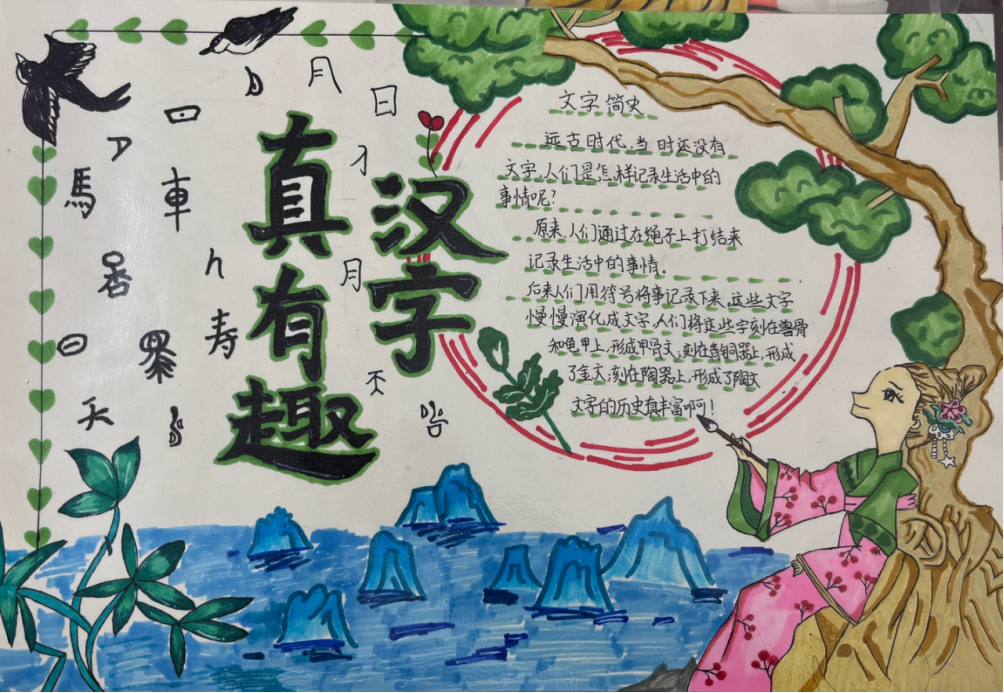 汉字真有趣
月
日
四
馬
車
月
寿
天
不
文字简史
远古时代,当时还没有
文字,人们是怎样记录生活中的
事情呢?
原来,人们通过在绳子上打结来
记录生活中的事情.
后来人们用符号将事记录下来,这些文字
慢慢演化成文字,人们将这些字刻在兽骨
和龟甲上,形成甲骨文;刻在青铜器上,形成
了金文,刻在陶器上,形成了陶文
文字的历史真丰富啊!